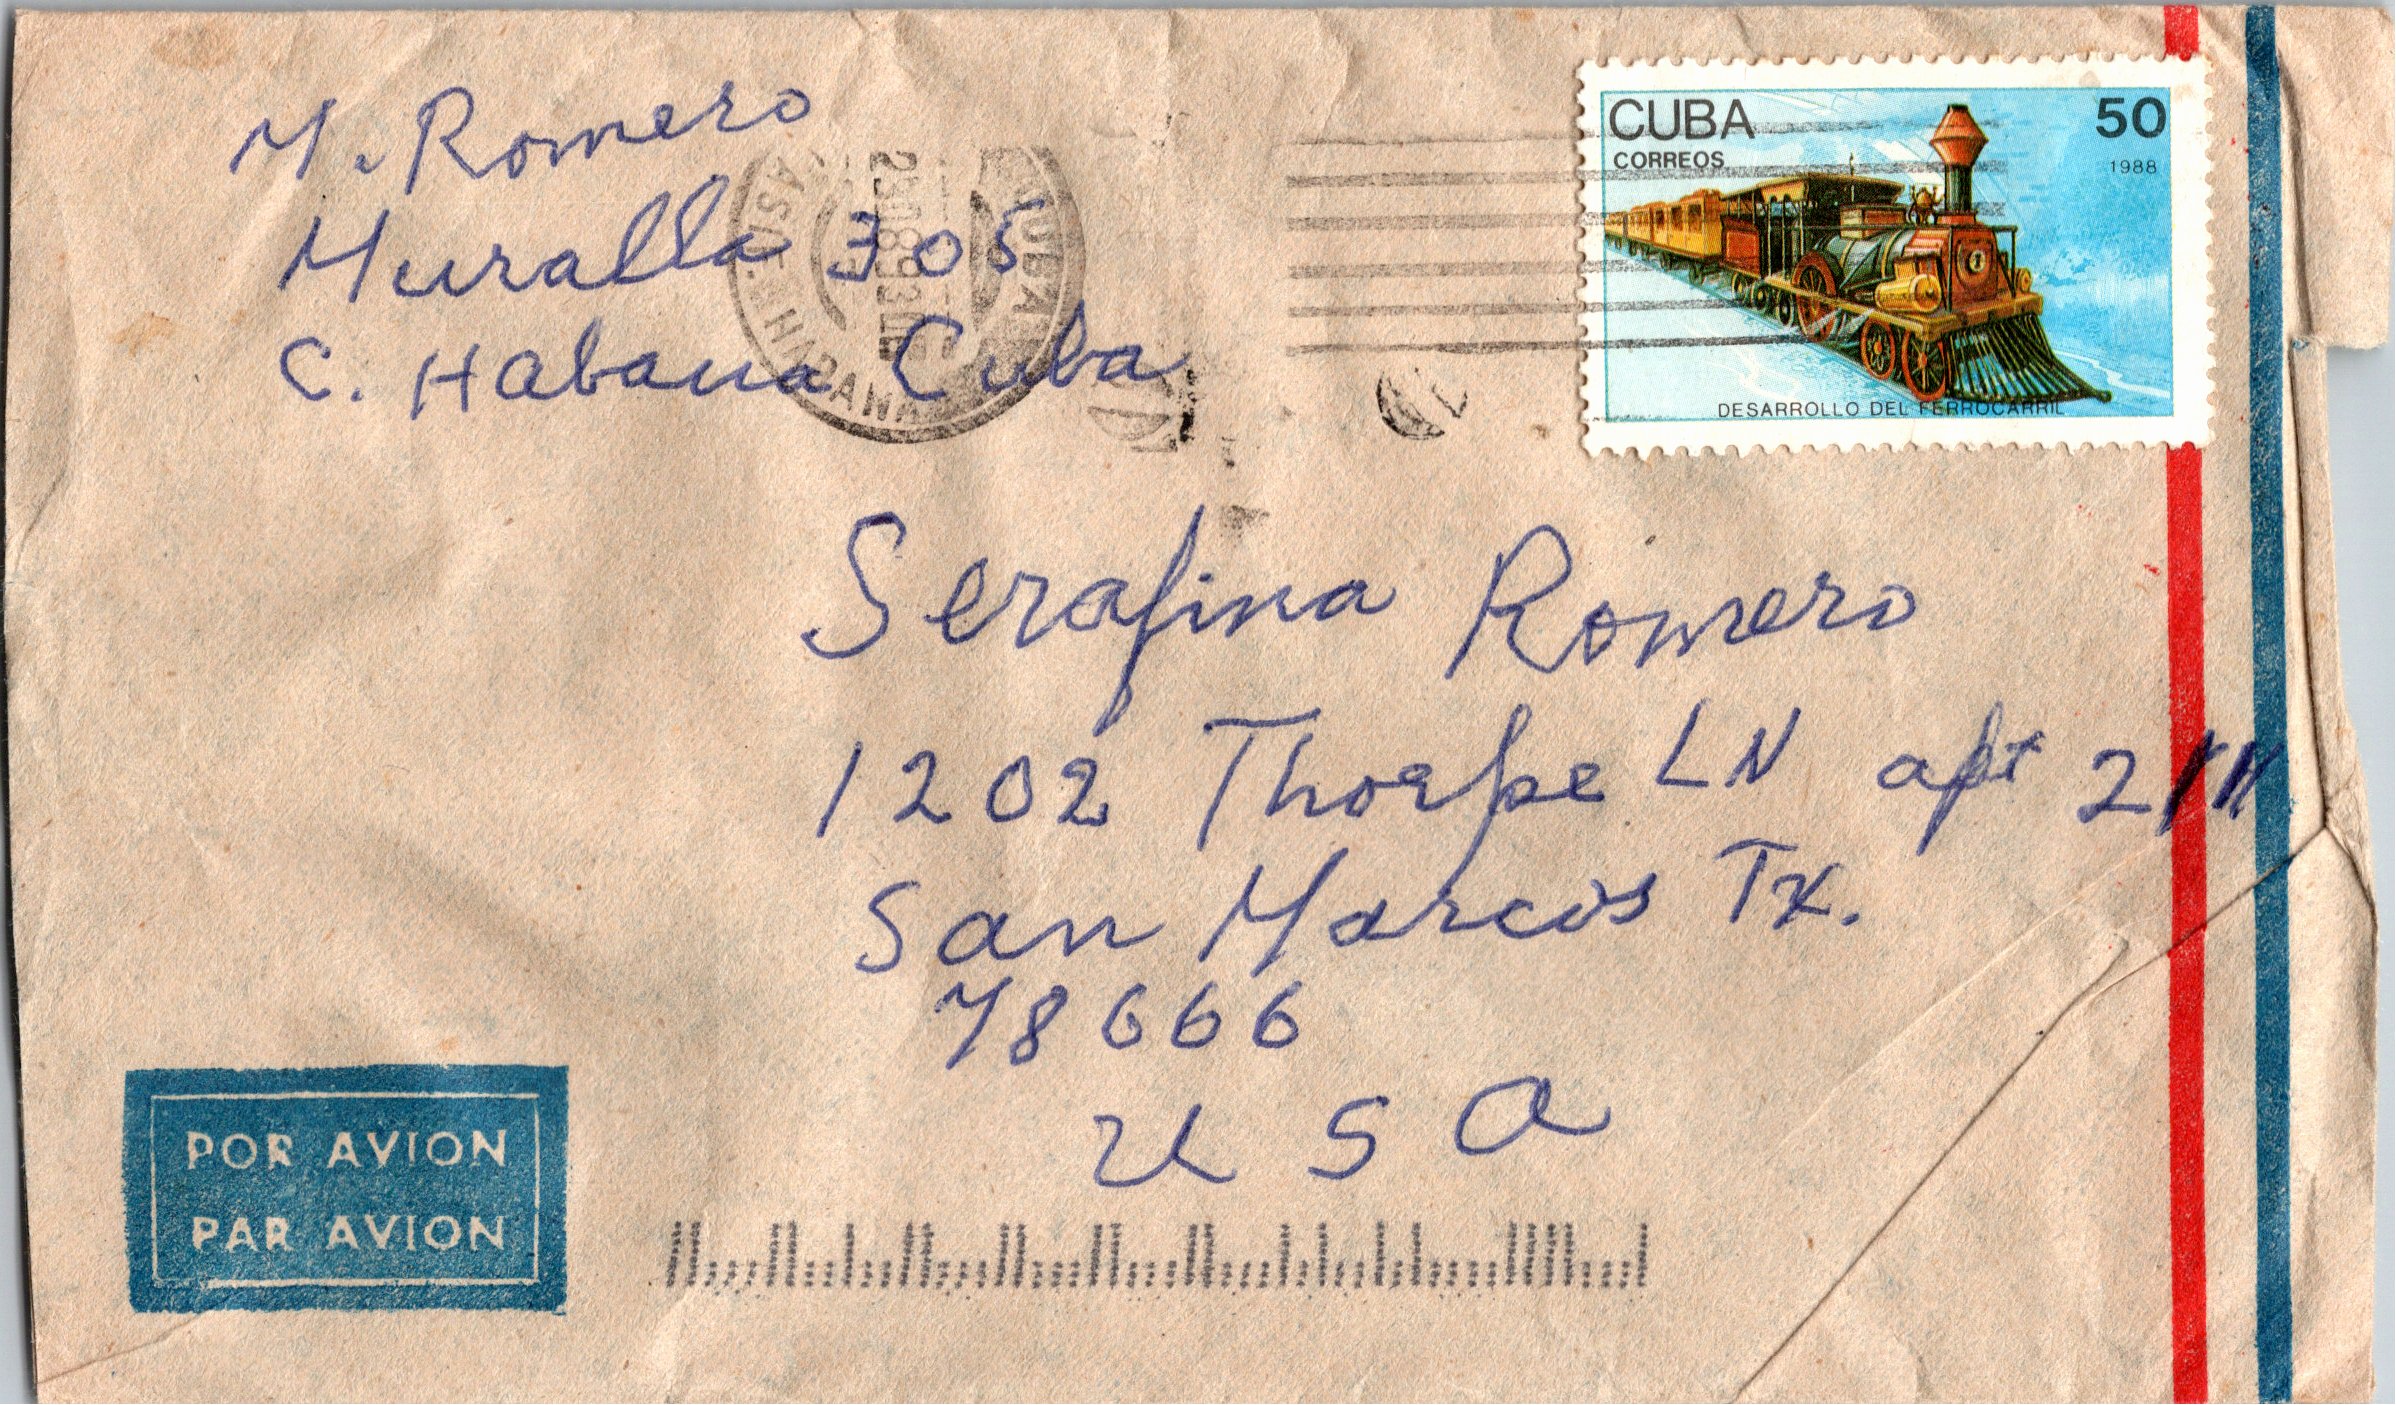 M. Romero
Muralla 305
C. Habana Cuba
CUBA
50
CORREOS
1988
DESARROLLO DEL FERROCARRIL
CUBA
HABANA
Serafina Romero
1202 Thorpe LN apt
San Marcos Tx.
78666
USA
POR AVION
PAR AVION